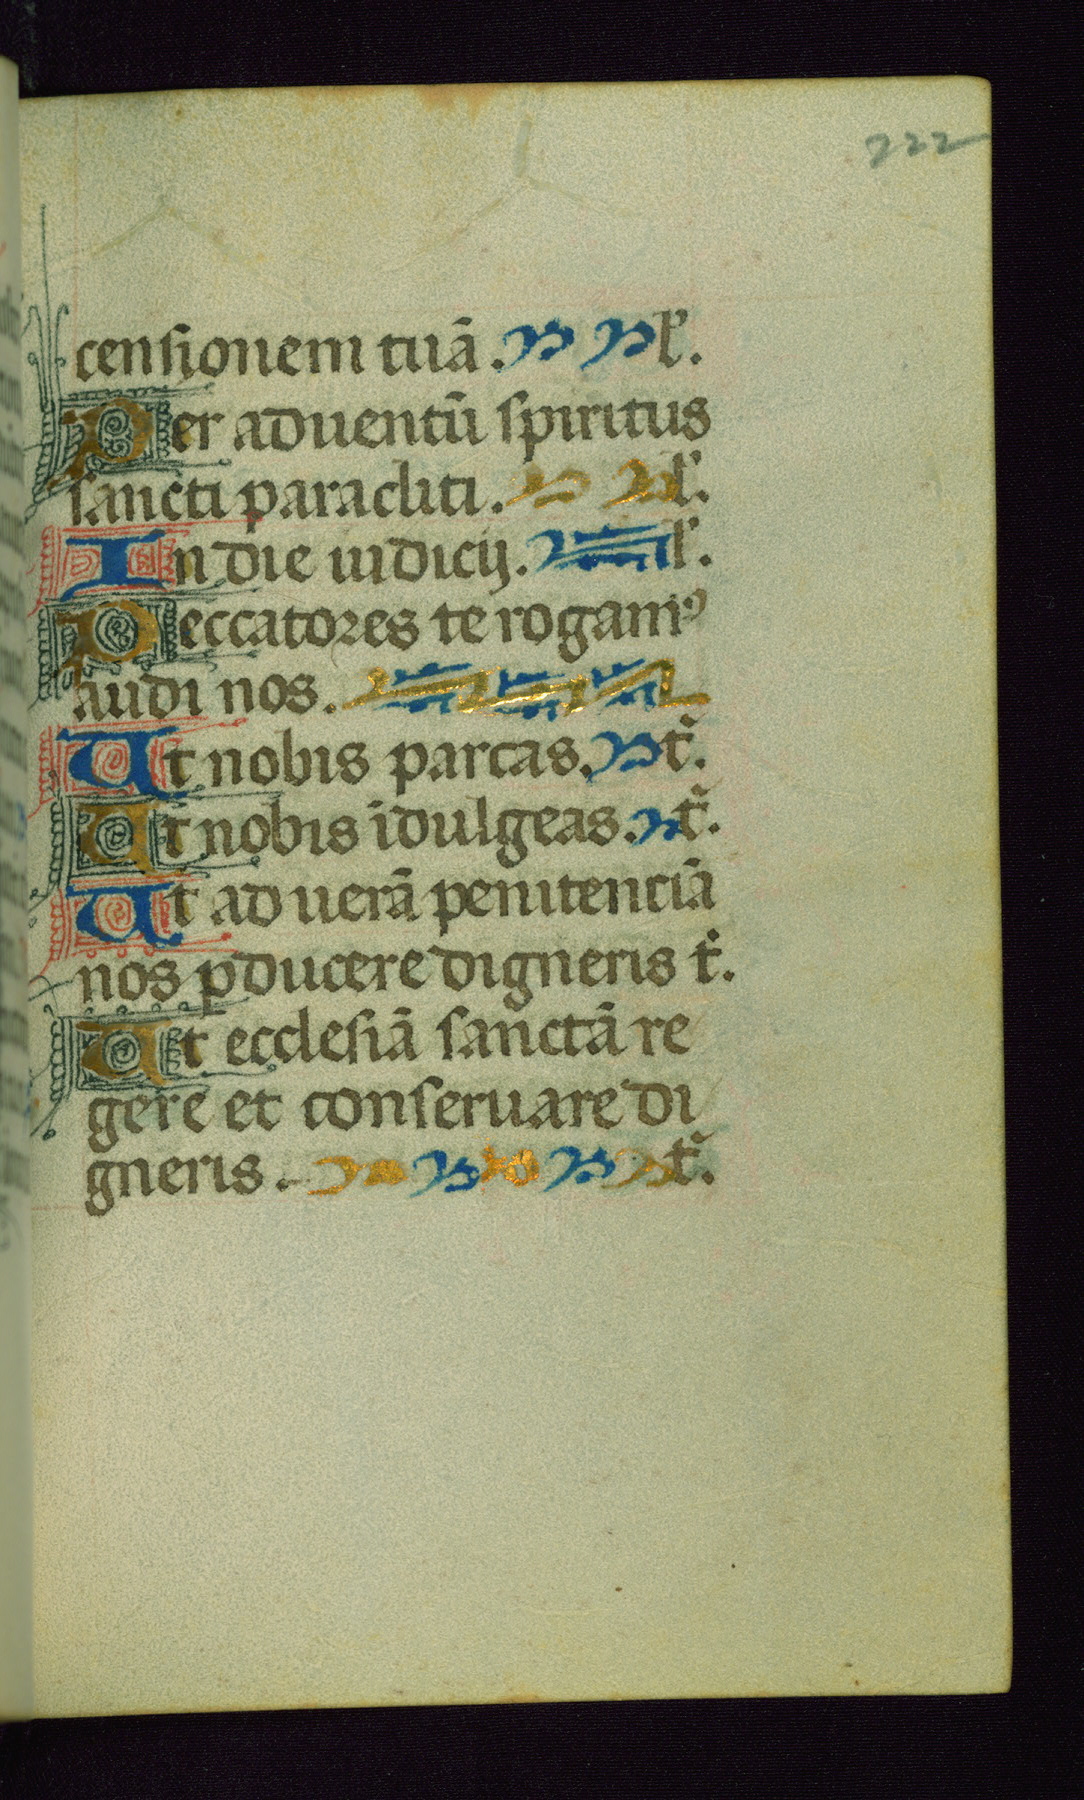 222
censionem tuā. l̉.
Per aduentū spiritus
sancti paracliti. l̉.
In die iudicij. l̉.
Peccatores te rogamꝰ
audi nos.
Ut nobis parcas. t̉.
Ut nobis īdulgeas. t̉.
Ut ad uerā penitenciā
nos pducere digneris t̉.
Ut ecclesiā sanctā re
gere et conseruare di
gneris. t̉.